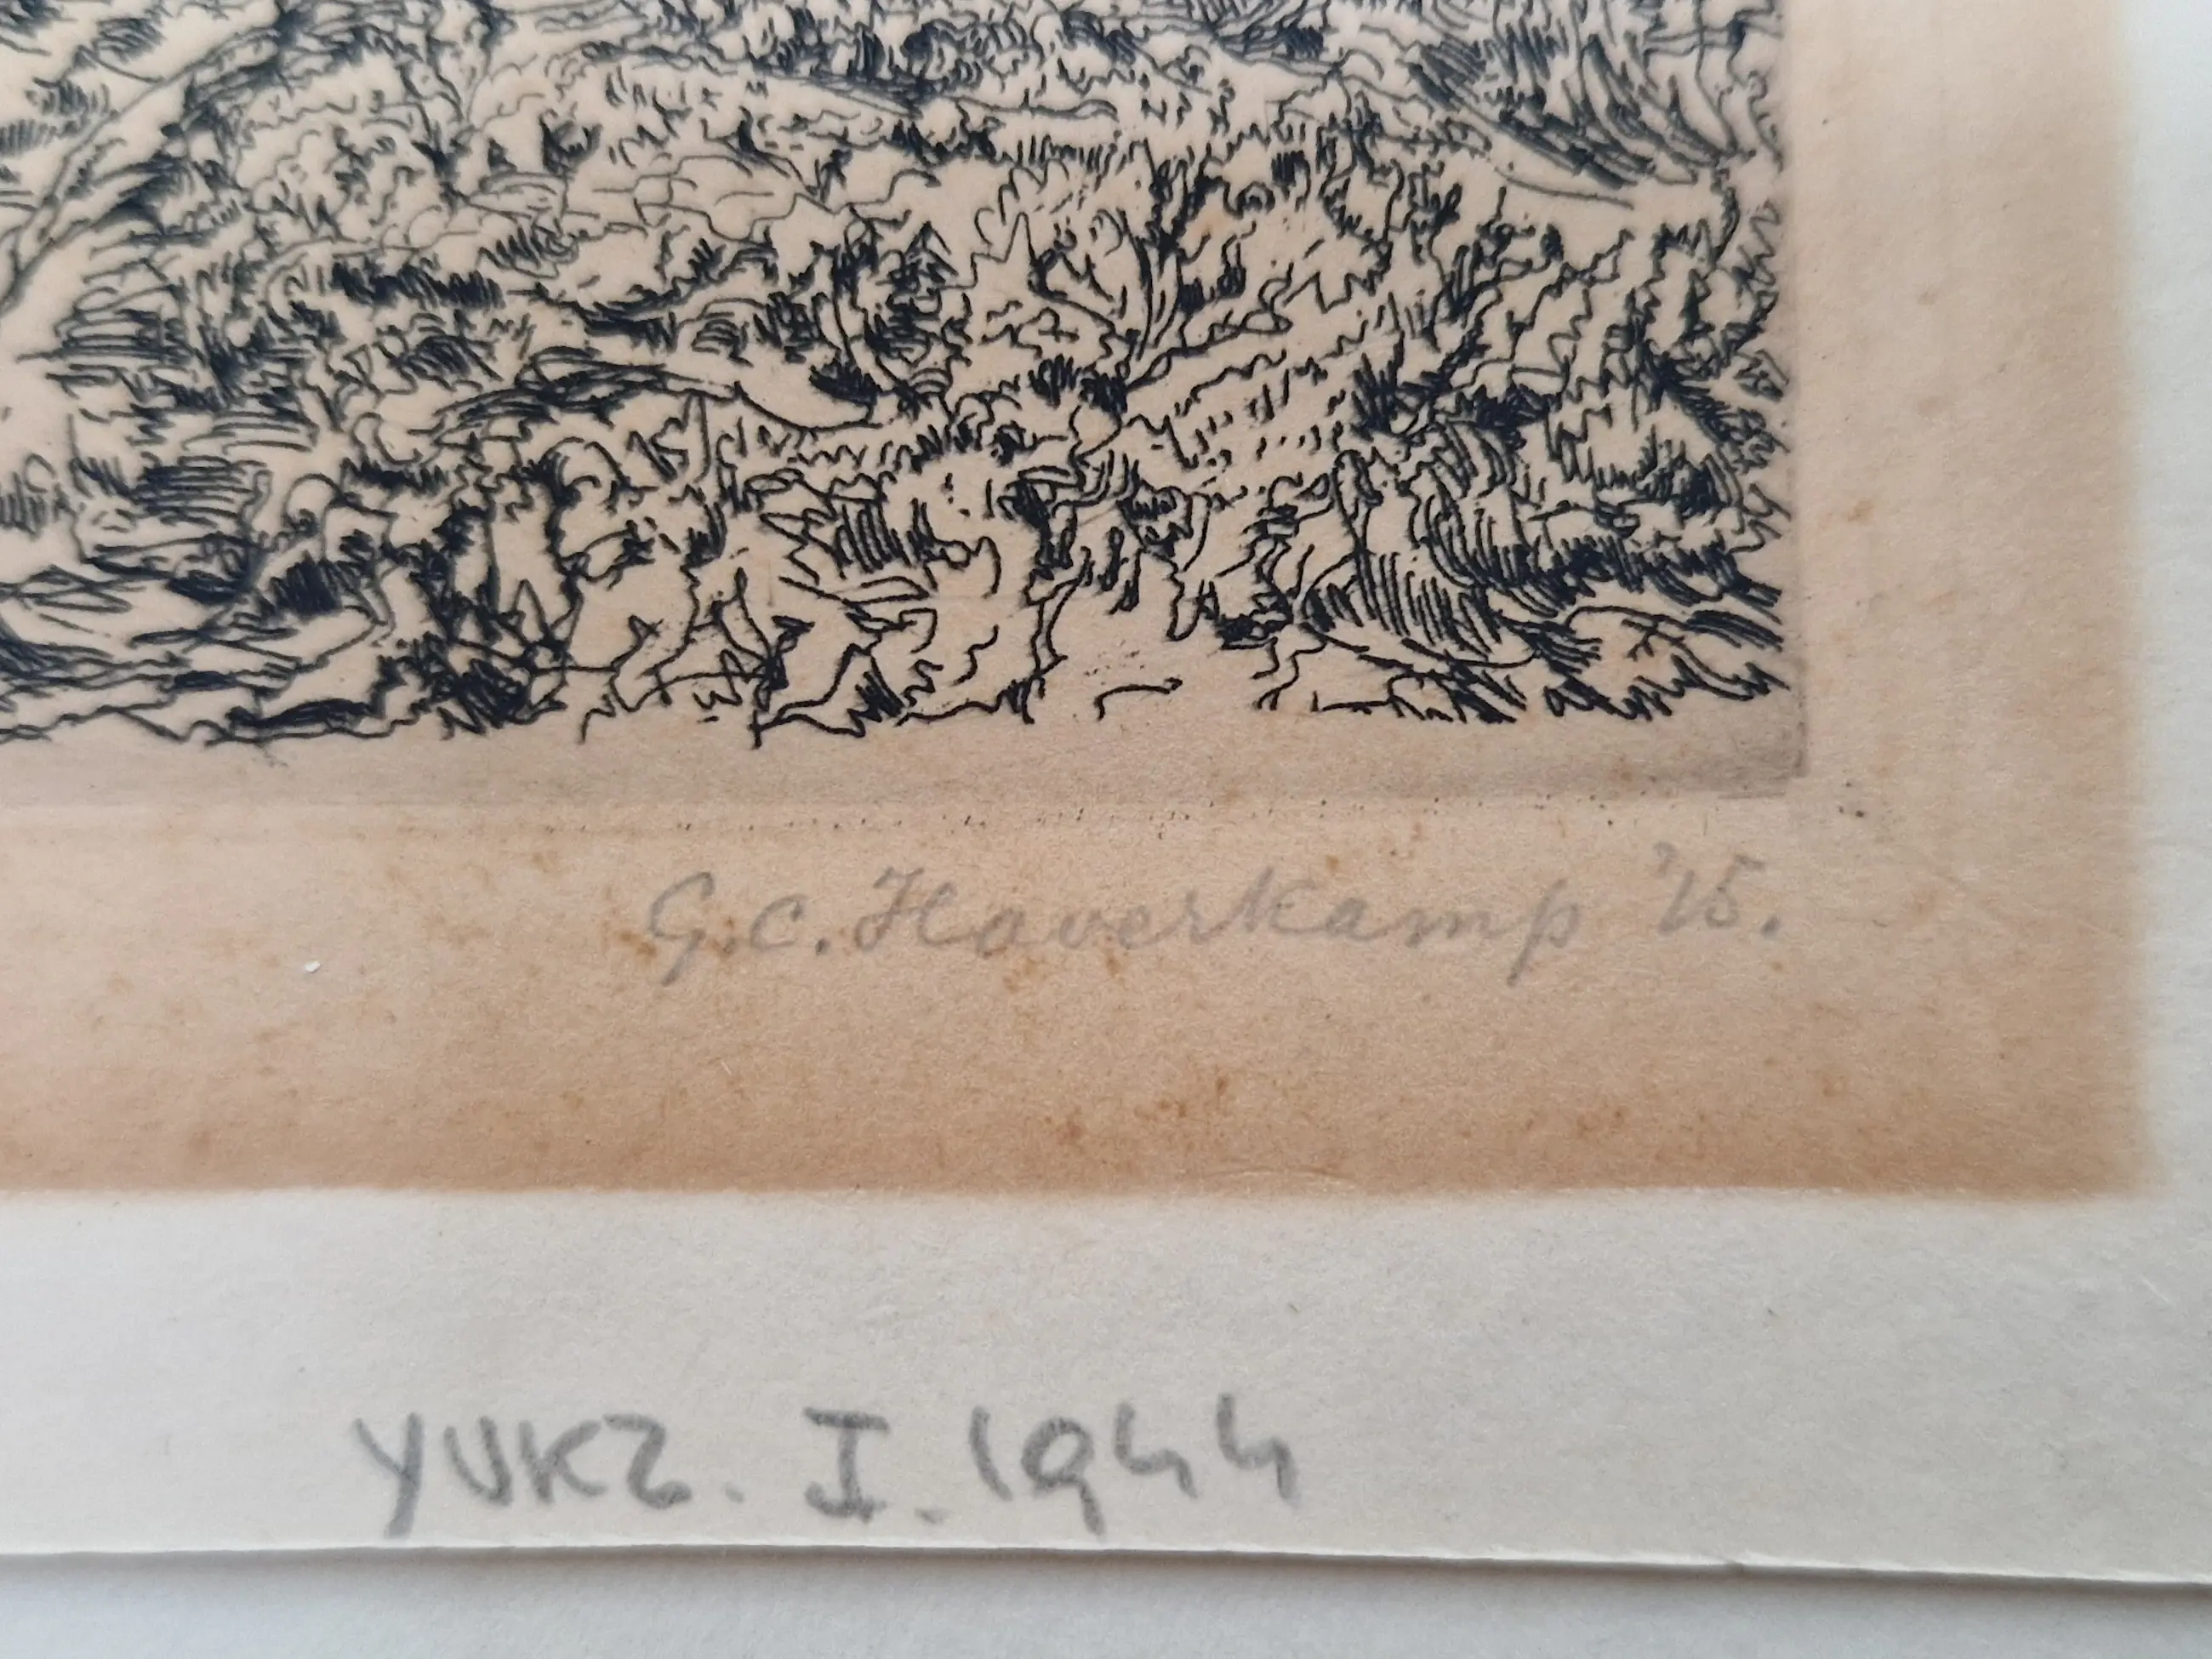 G.C. Haverkamp '15.
YUKZ. I. 1944